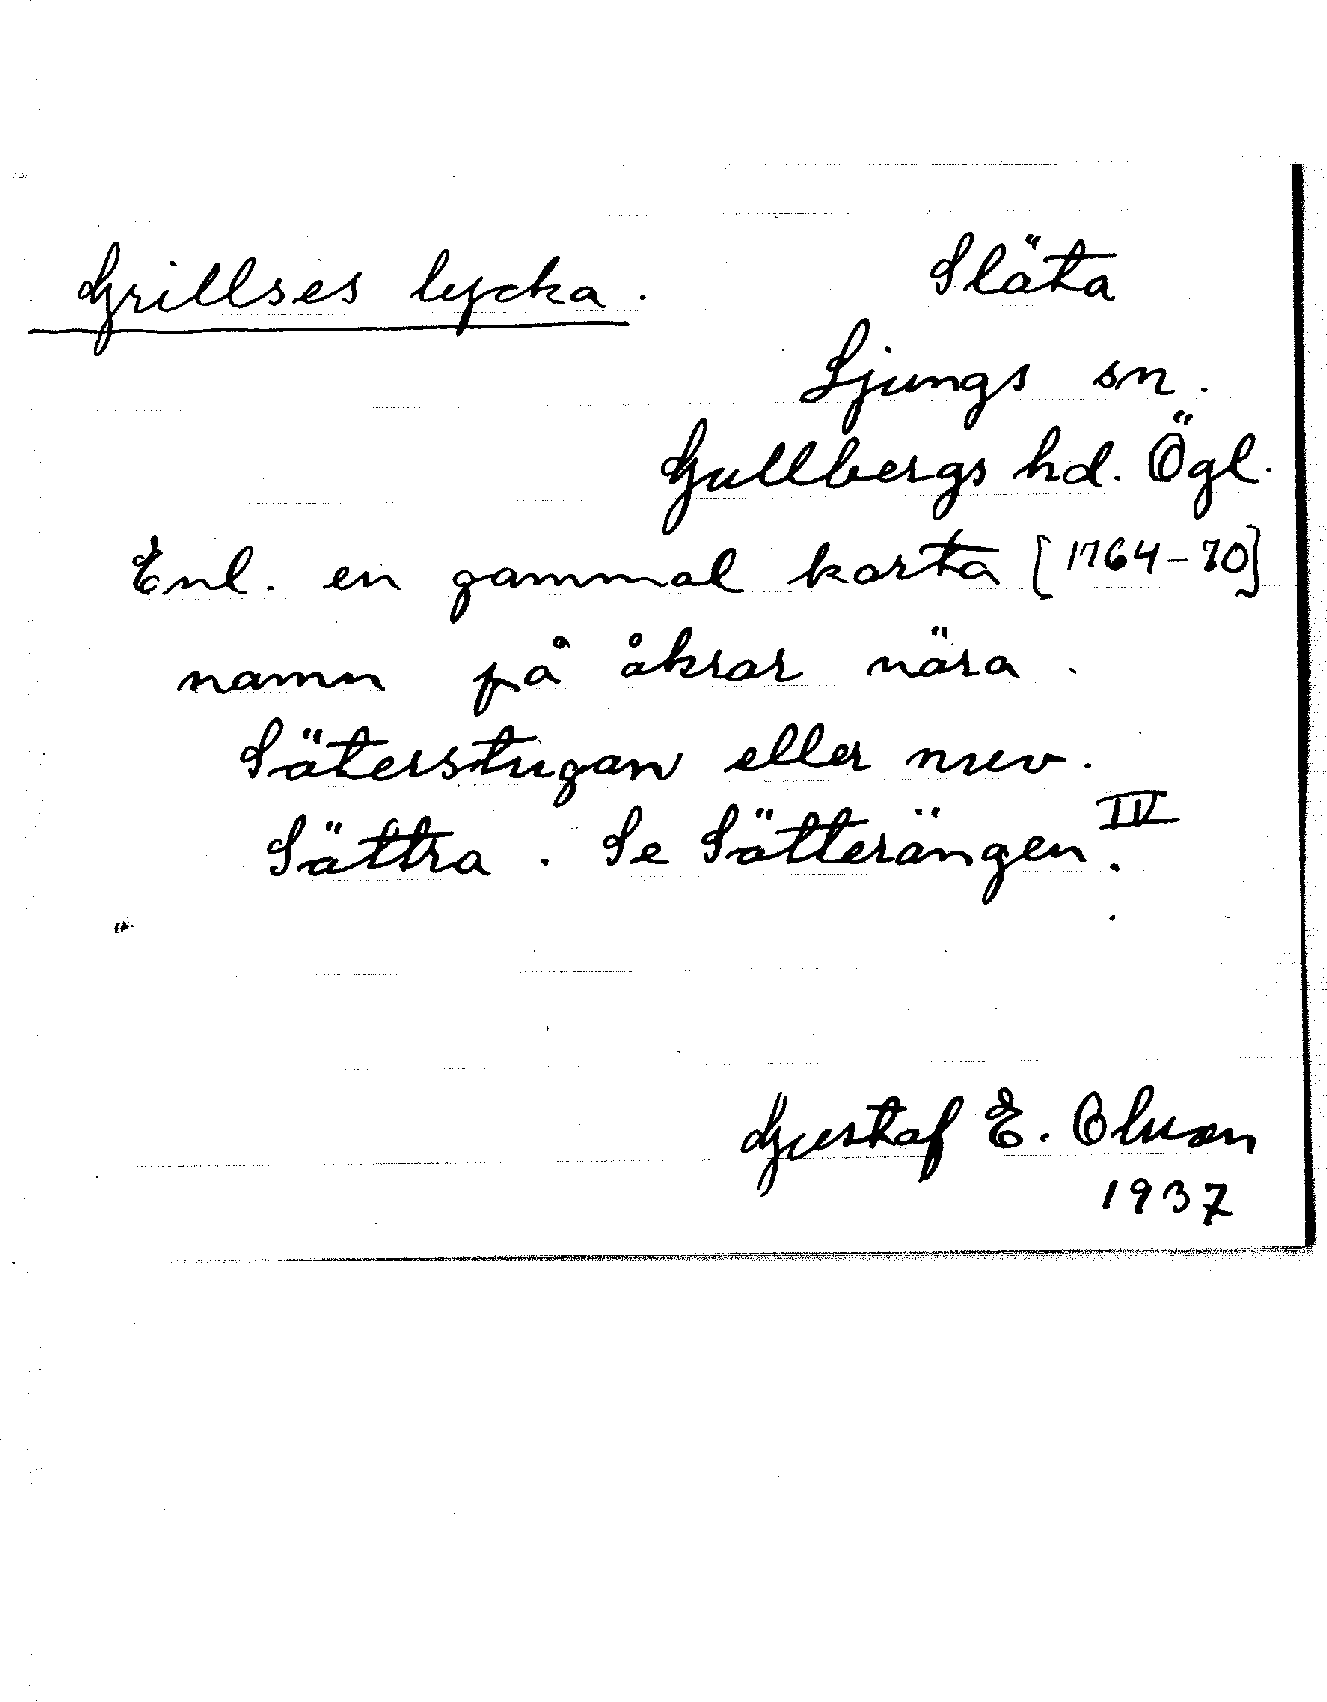 Grillses lycka.
Släta
Ljungs sn.
Gullbergs hd. Ögl.
Enl. en gammal karta [1764-70]
namn på åkrar nära
Säterstugan eller nuv.
Sättra. Se Sätterängen IV.
Gustaf E. Olsson
1937